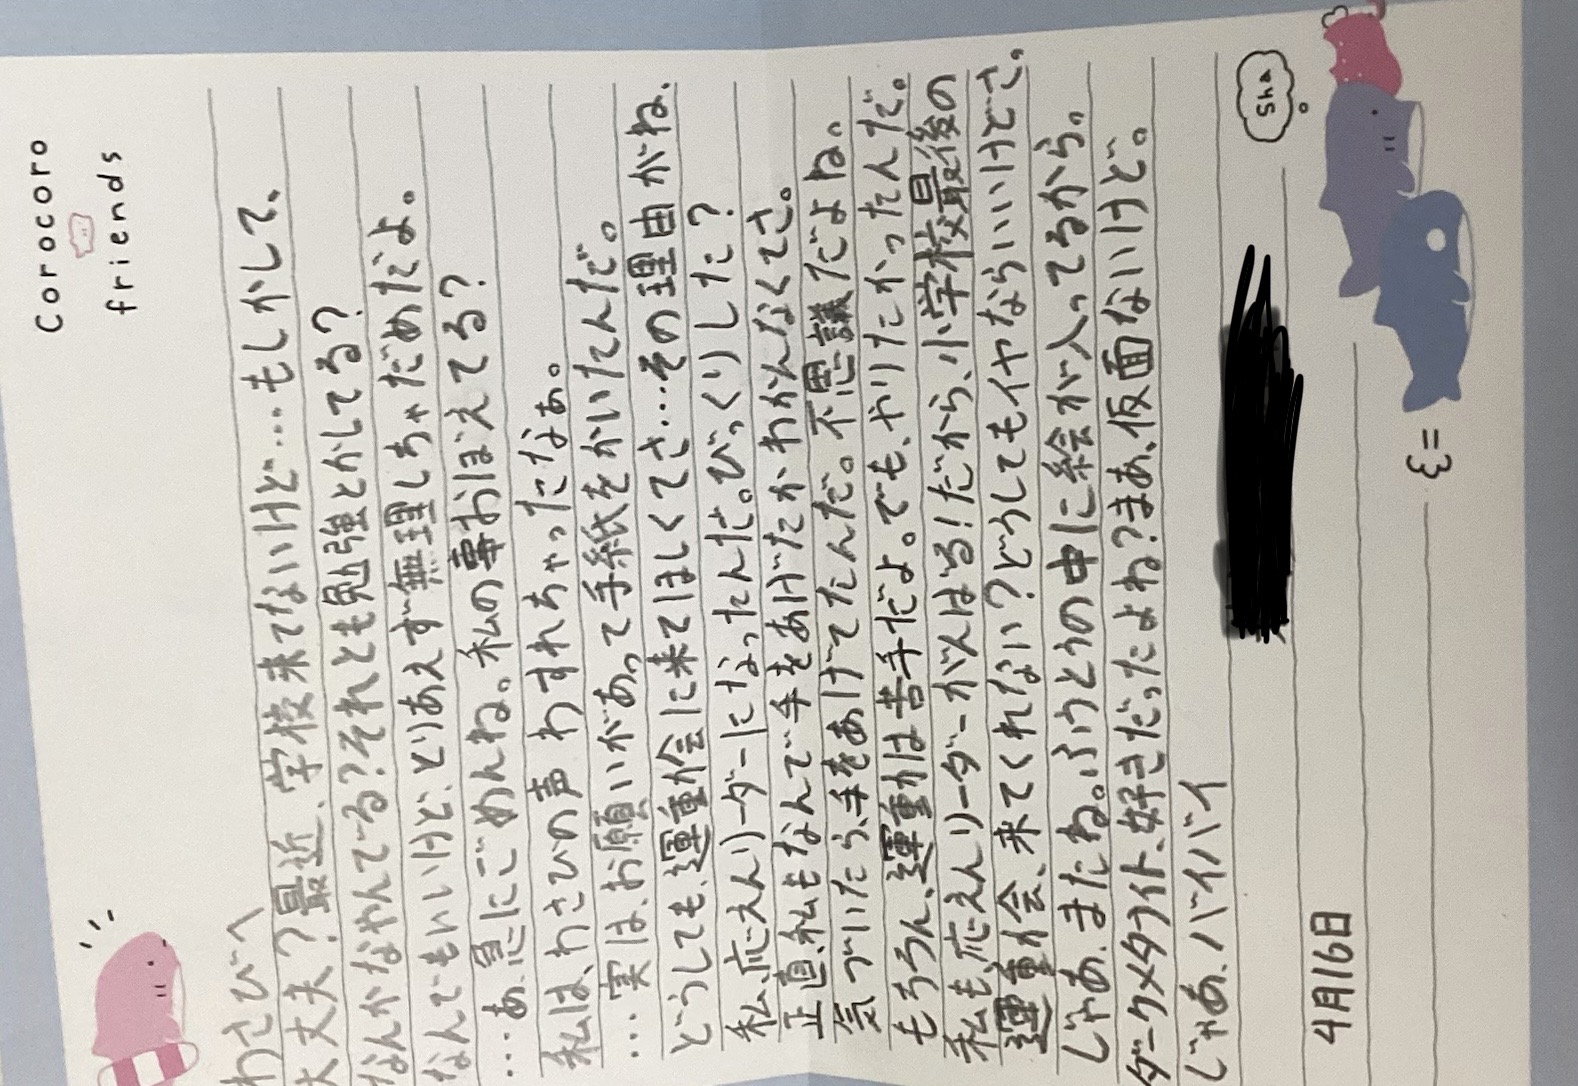 Corocoro
friends
わさびへ
大丈夫？最近、学校来てないけど…もしかして、
なんかなやんでる？それとも勉強とかしてる？
なんでもいいけど、とりあえず無理しちゃだめだよ。
…あ、急にごめんね。私の事おぼえてる？
私は、わさびの声わすれちゃったなぁ。
…実は、お願いがあって手紙をかいたんだ。
どうしても、運動会に来てほしくてさ…その理由がね、
私、応えんリーダーになったんだ。びっくりした？
正直、私もなんで手をあげたかわかんなくてさ。
気づいたら、手をあげてたんだ。不思議だよね。
もちろん、運動は苦手だよ。でも、やりたかったんだ。
私も、応えんリーダーがんばる！だから、小学校最後の
運動会、来てくれない？どうしてもイヤならいいけどさ。
じゃあ、またね。ふうとうの中に絵が入ってるから。
ダークメタナイト、好きだったよね？まあ、仮面ないけど。
じゃあ、バイバイ
Sha
4月16日